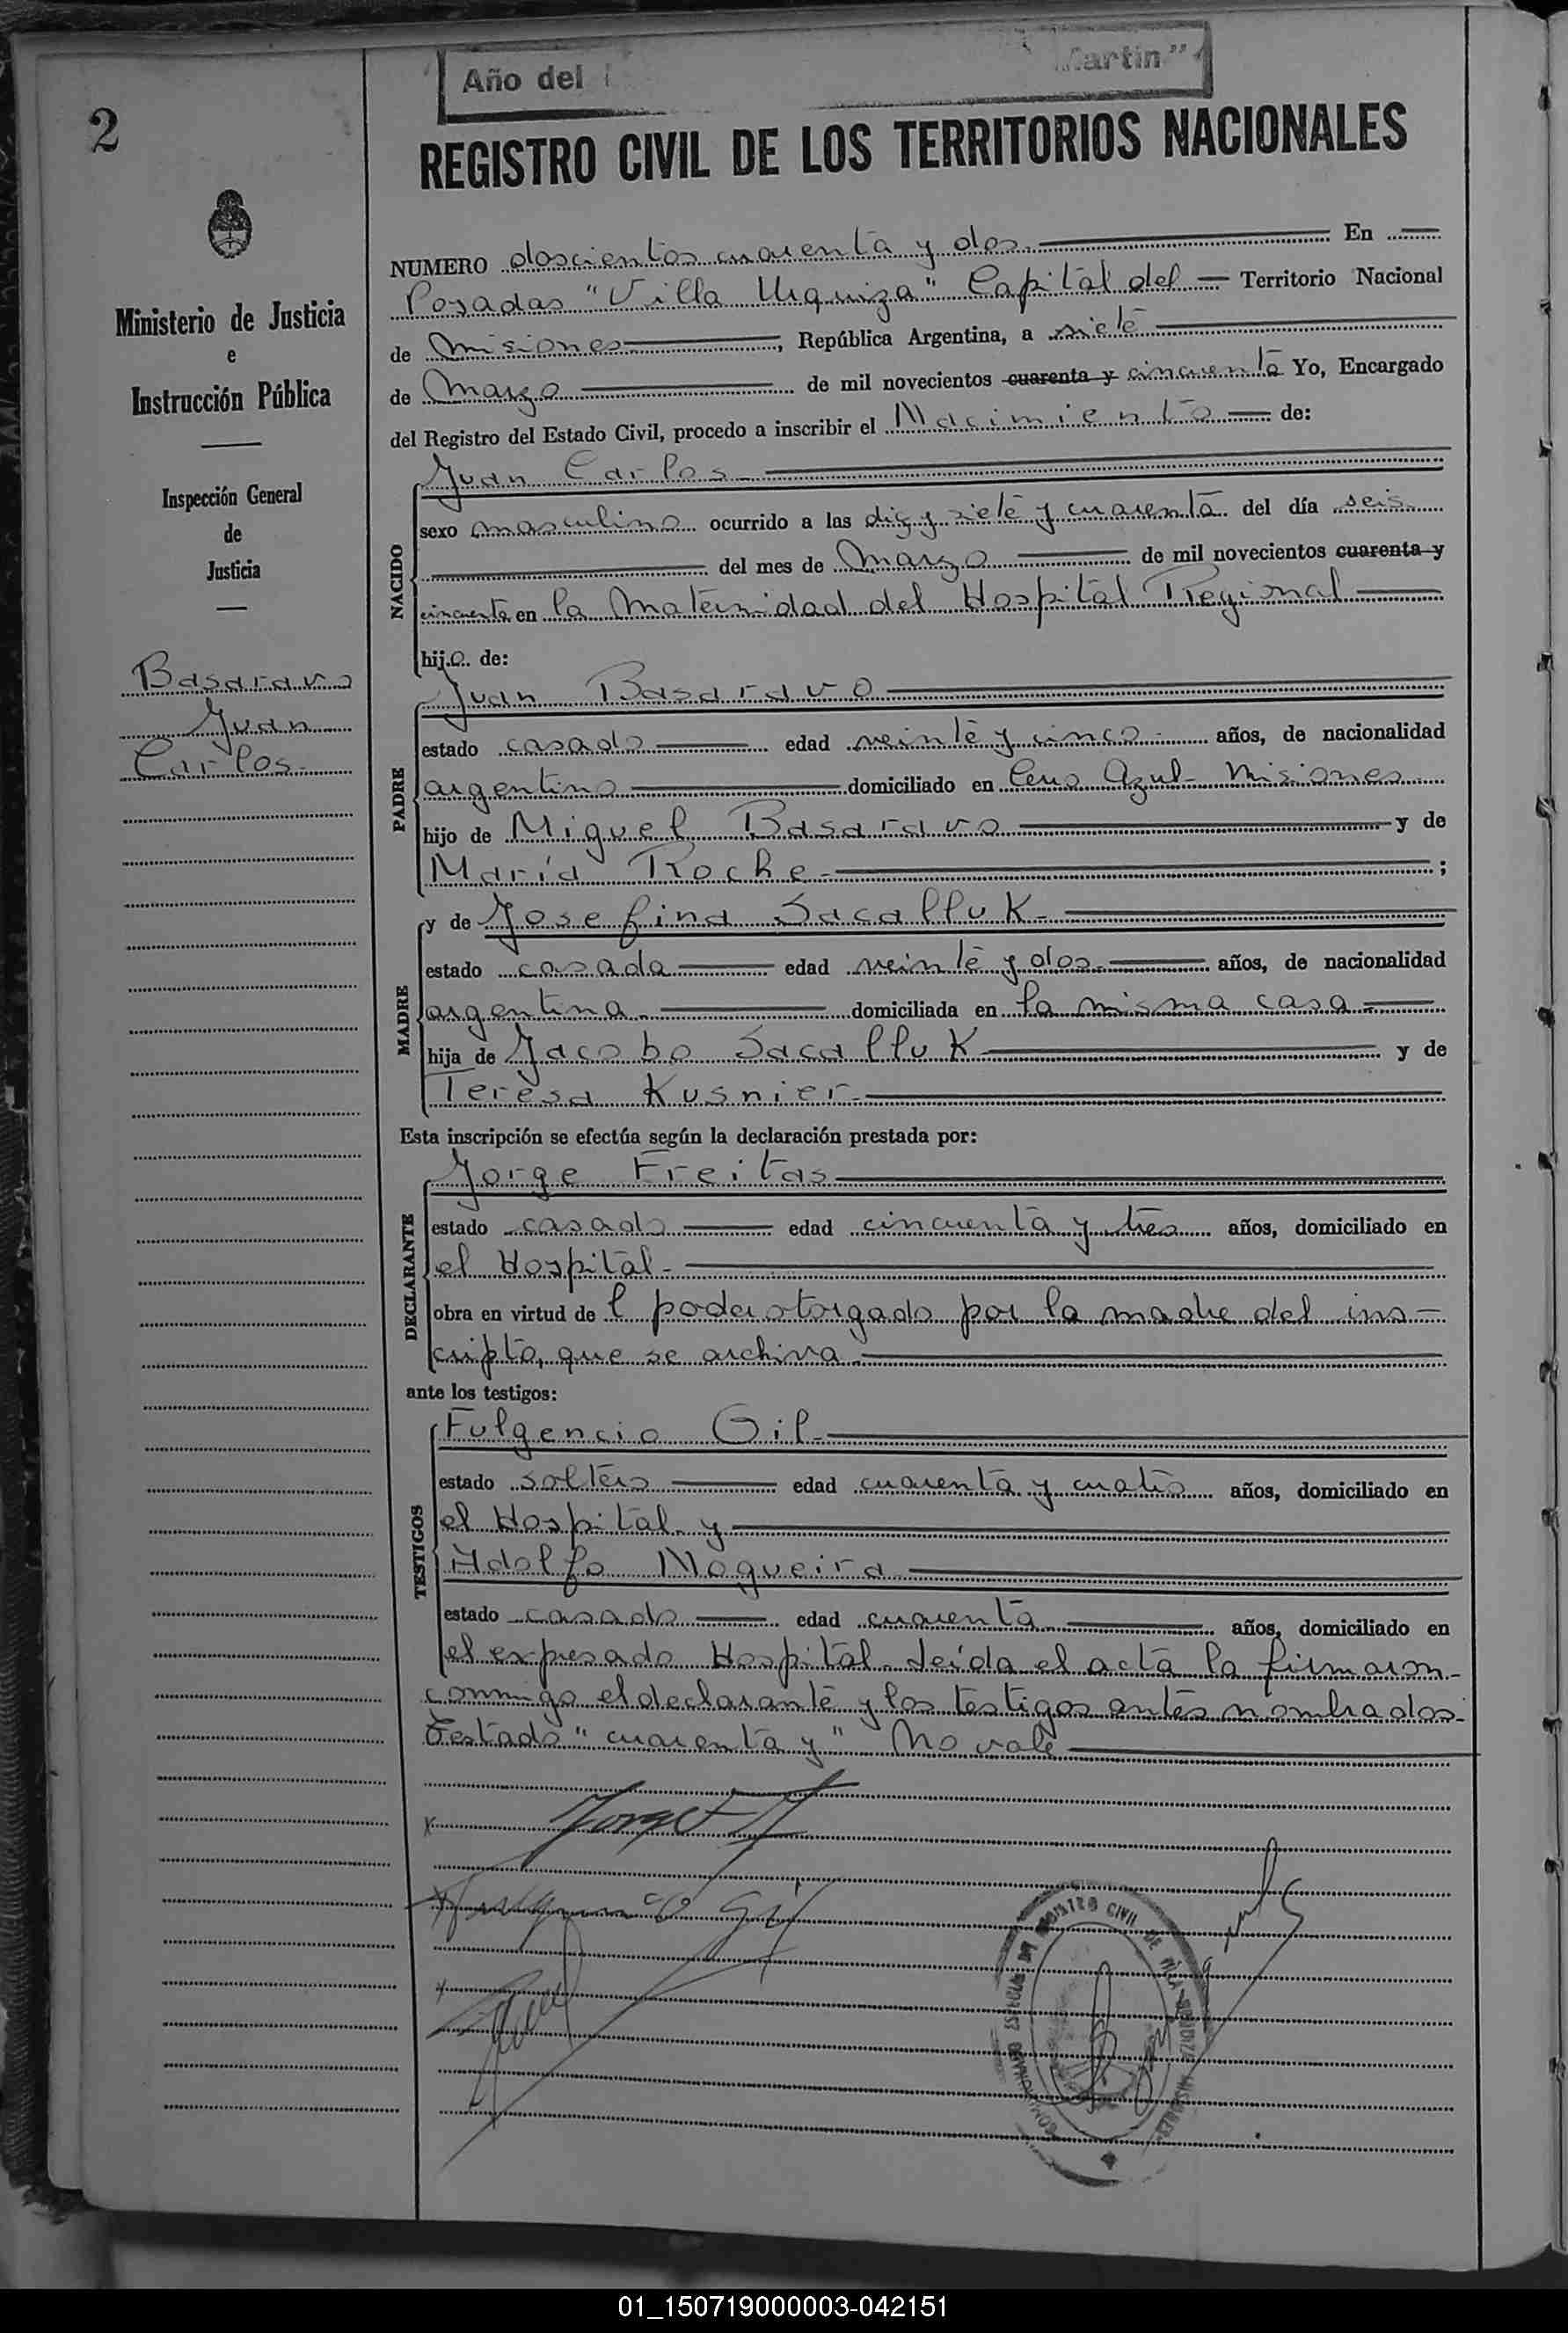 Año del
Martín"
2
REGISTRO CIVIL DE LOS TERRITORIOS NACIONALES
Ministerio de Justicia
e
Instrucción Pública
Inspección General
de
Justicia
Basaravo
Juan
Carlos.
NUMERO doscientos cuarenta y dos. En
Posadas "Villa Urquiza" Capital del Territorio Nacional
de Misiones, República Argentina, a siete
de Marzo de mil novecientos cuarenta y cincuenta Yo, Encargado
del Registro del Estado Civil, procedo a inscribir el Nacimiento de:
NACIDO
Juan Carlos.
sexo masculino ocurrido a las diez y siete y cuarenta del día seis
del mes de Marzo de mil novecientos cuarenta y
cincuenta en la Maternidad del Hospital Regional
hijo de:
PADRE
Juan Basaravo
estado casado edad veinte y cinco años, de nacionalidad
argentino domiciliado en Cerro Azul - Misiones
hijo de Miguel Basaravo y de
María Roche - ;
MADRE
y de Josefina Sacalluk -
estado casada edad veinte y dos años, de nacionalidad
argentina domiciliada en la misma casa
hija de Jacobo Sacalluk y de
Teresa Kusnier -
Esta inscripción se efectúa según la declaración prestada por:
DECLARANTE
Jorge Freitas
estado casado edad cincuenta y tres años, domiciliado en
el Hospital -
obra en virtud de l poder otorgado por la madre del ins-
cripto, que se archiva
ante los testigos:
TESTIGOS
Fulgencio Gil -
estado soltero edad cuarenta y cuatro años, domiciliado en
el Hospital y
Adolfo Nogueira
estado casado edad cuarenta años, domiciliado en
el expresado Hospital. Leída el acta la firmaron
conmigo el declarante y los testigos antes nombrados.
Testado "cuarenta y" No vale
REGISTRO CIVIL DE
01_150719000003-042151